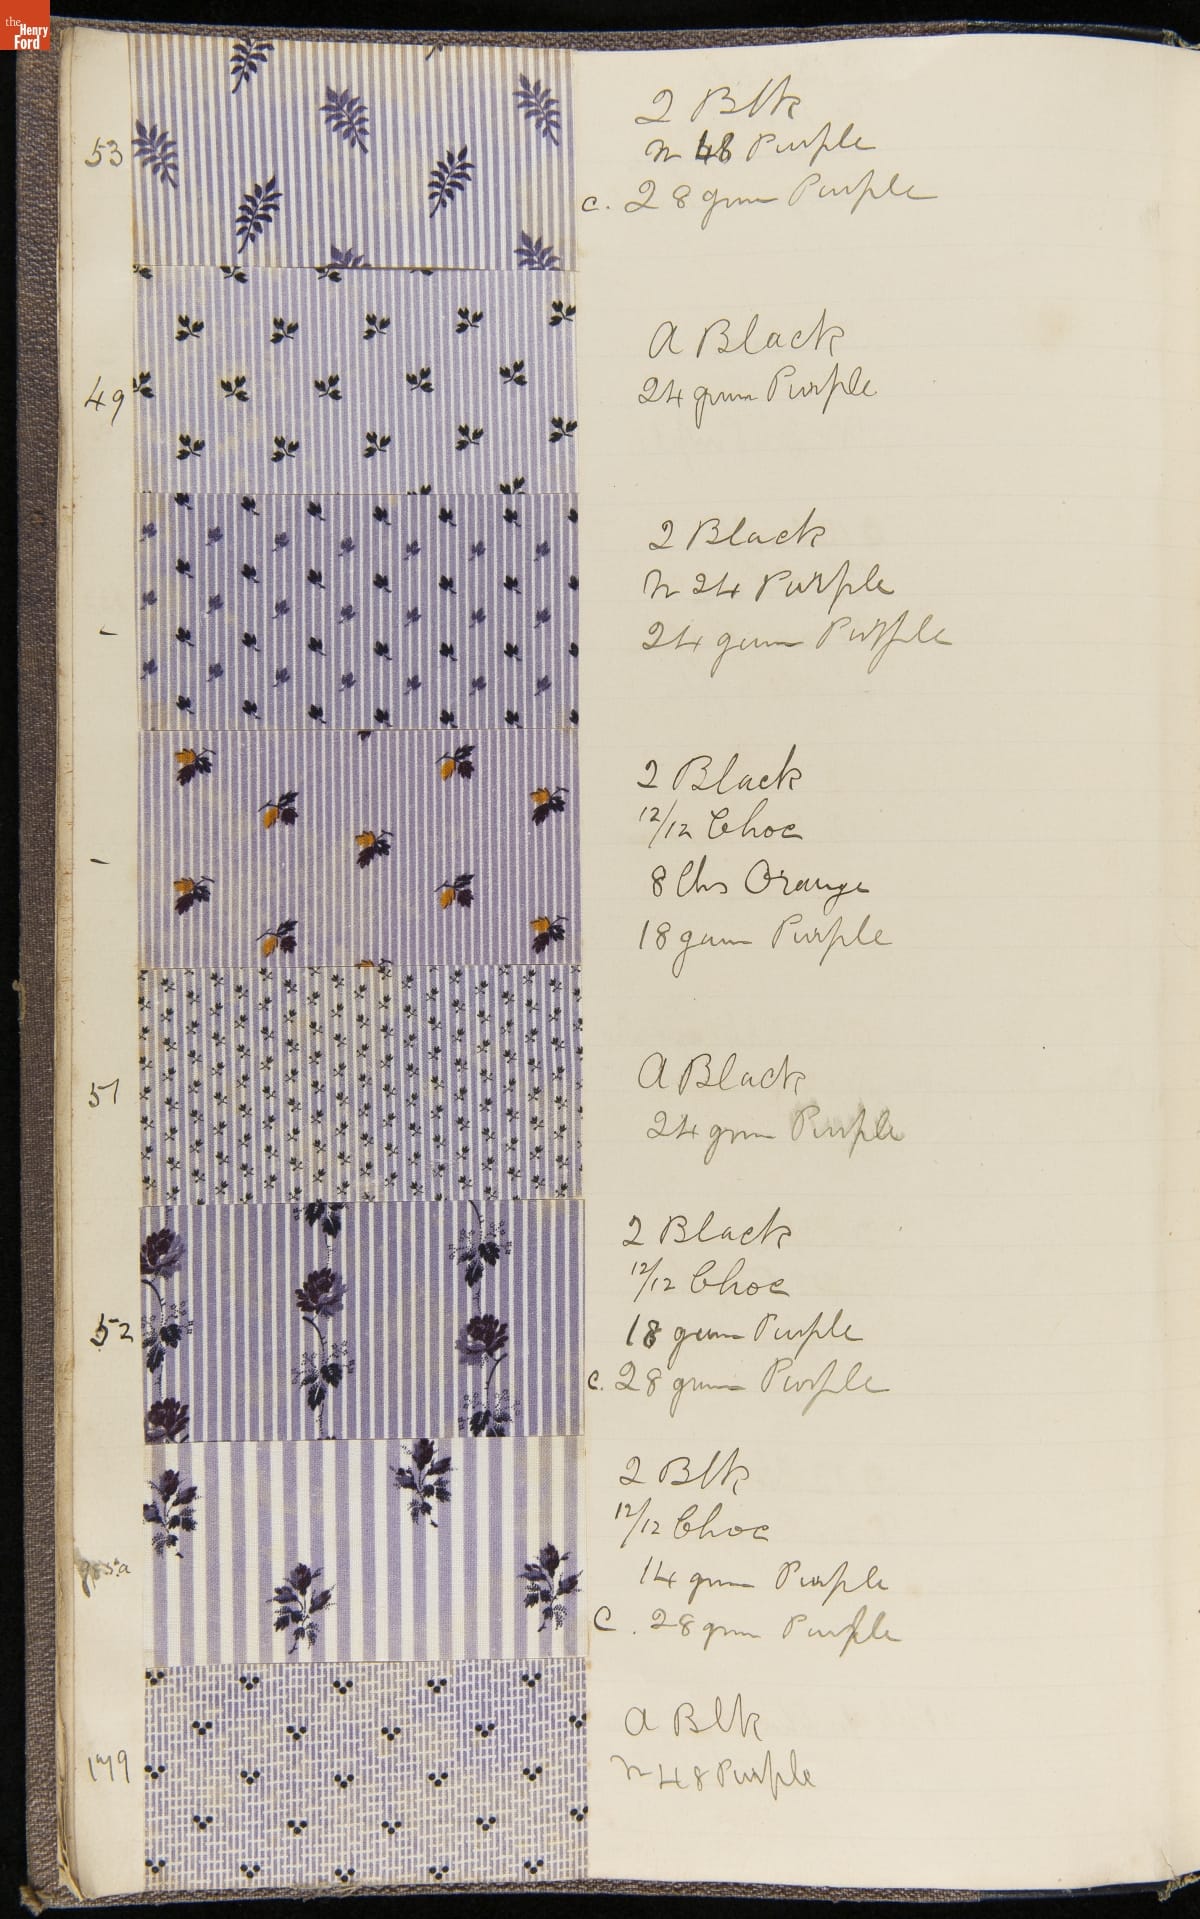 the
Henry
Ford
53
2 Blk
n 48 Purple
c. 28 gum Purple
49
A Black
24 gum Purple
-
2 Black
n 24 Purple
24 gum Purple
-
2 Black
12/12 Choc
8 lbs Orange
18 gum Purple
51
A Black
24 gum Purple
52
2 Black
12/12 Choc
18 gum Purple
c. 28 gum Purple
2 Blk
12/12 Choc
14 gum Purple
C. 28 gum Purple
179
A Blk
n 48 Purple